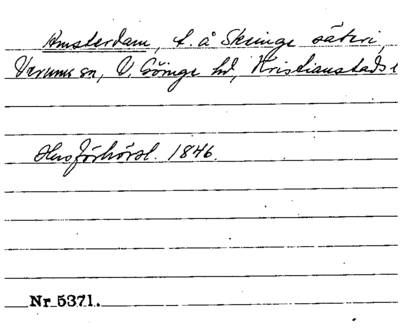 Amsterdam, t. å Skeinge säteri,
Verums sn, V. Göinge hd, Kristianstads l
Husförhörsl. 1846.
Nr 5371.